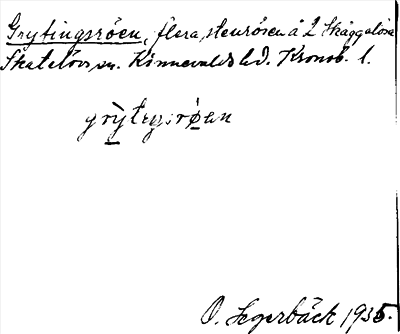 Grytingsröen, flera stenrösen å 2 Skäggalösa
Skatelövs sn. Kinnevalds hd. Kronob. l.
grỳtiŋsrøen
O. Segerbäck 1935.